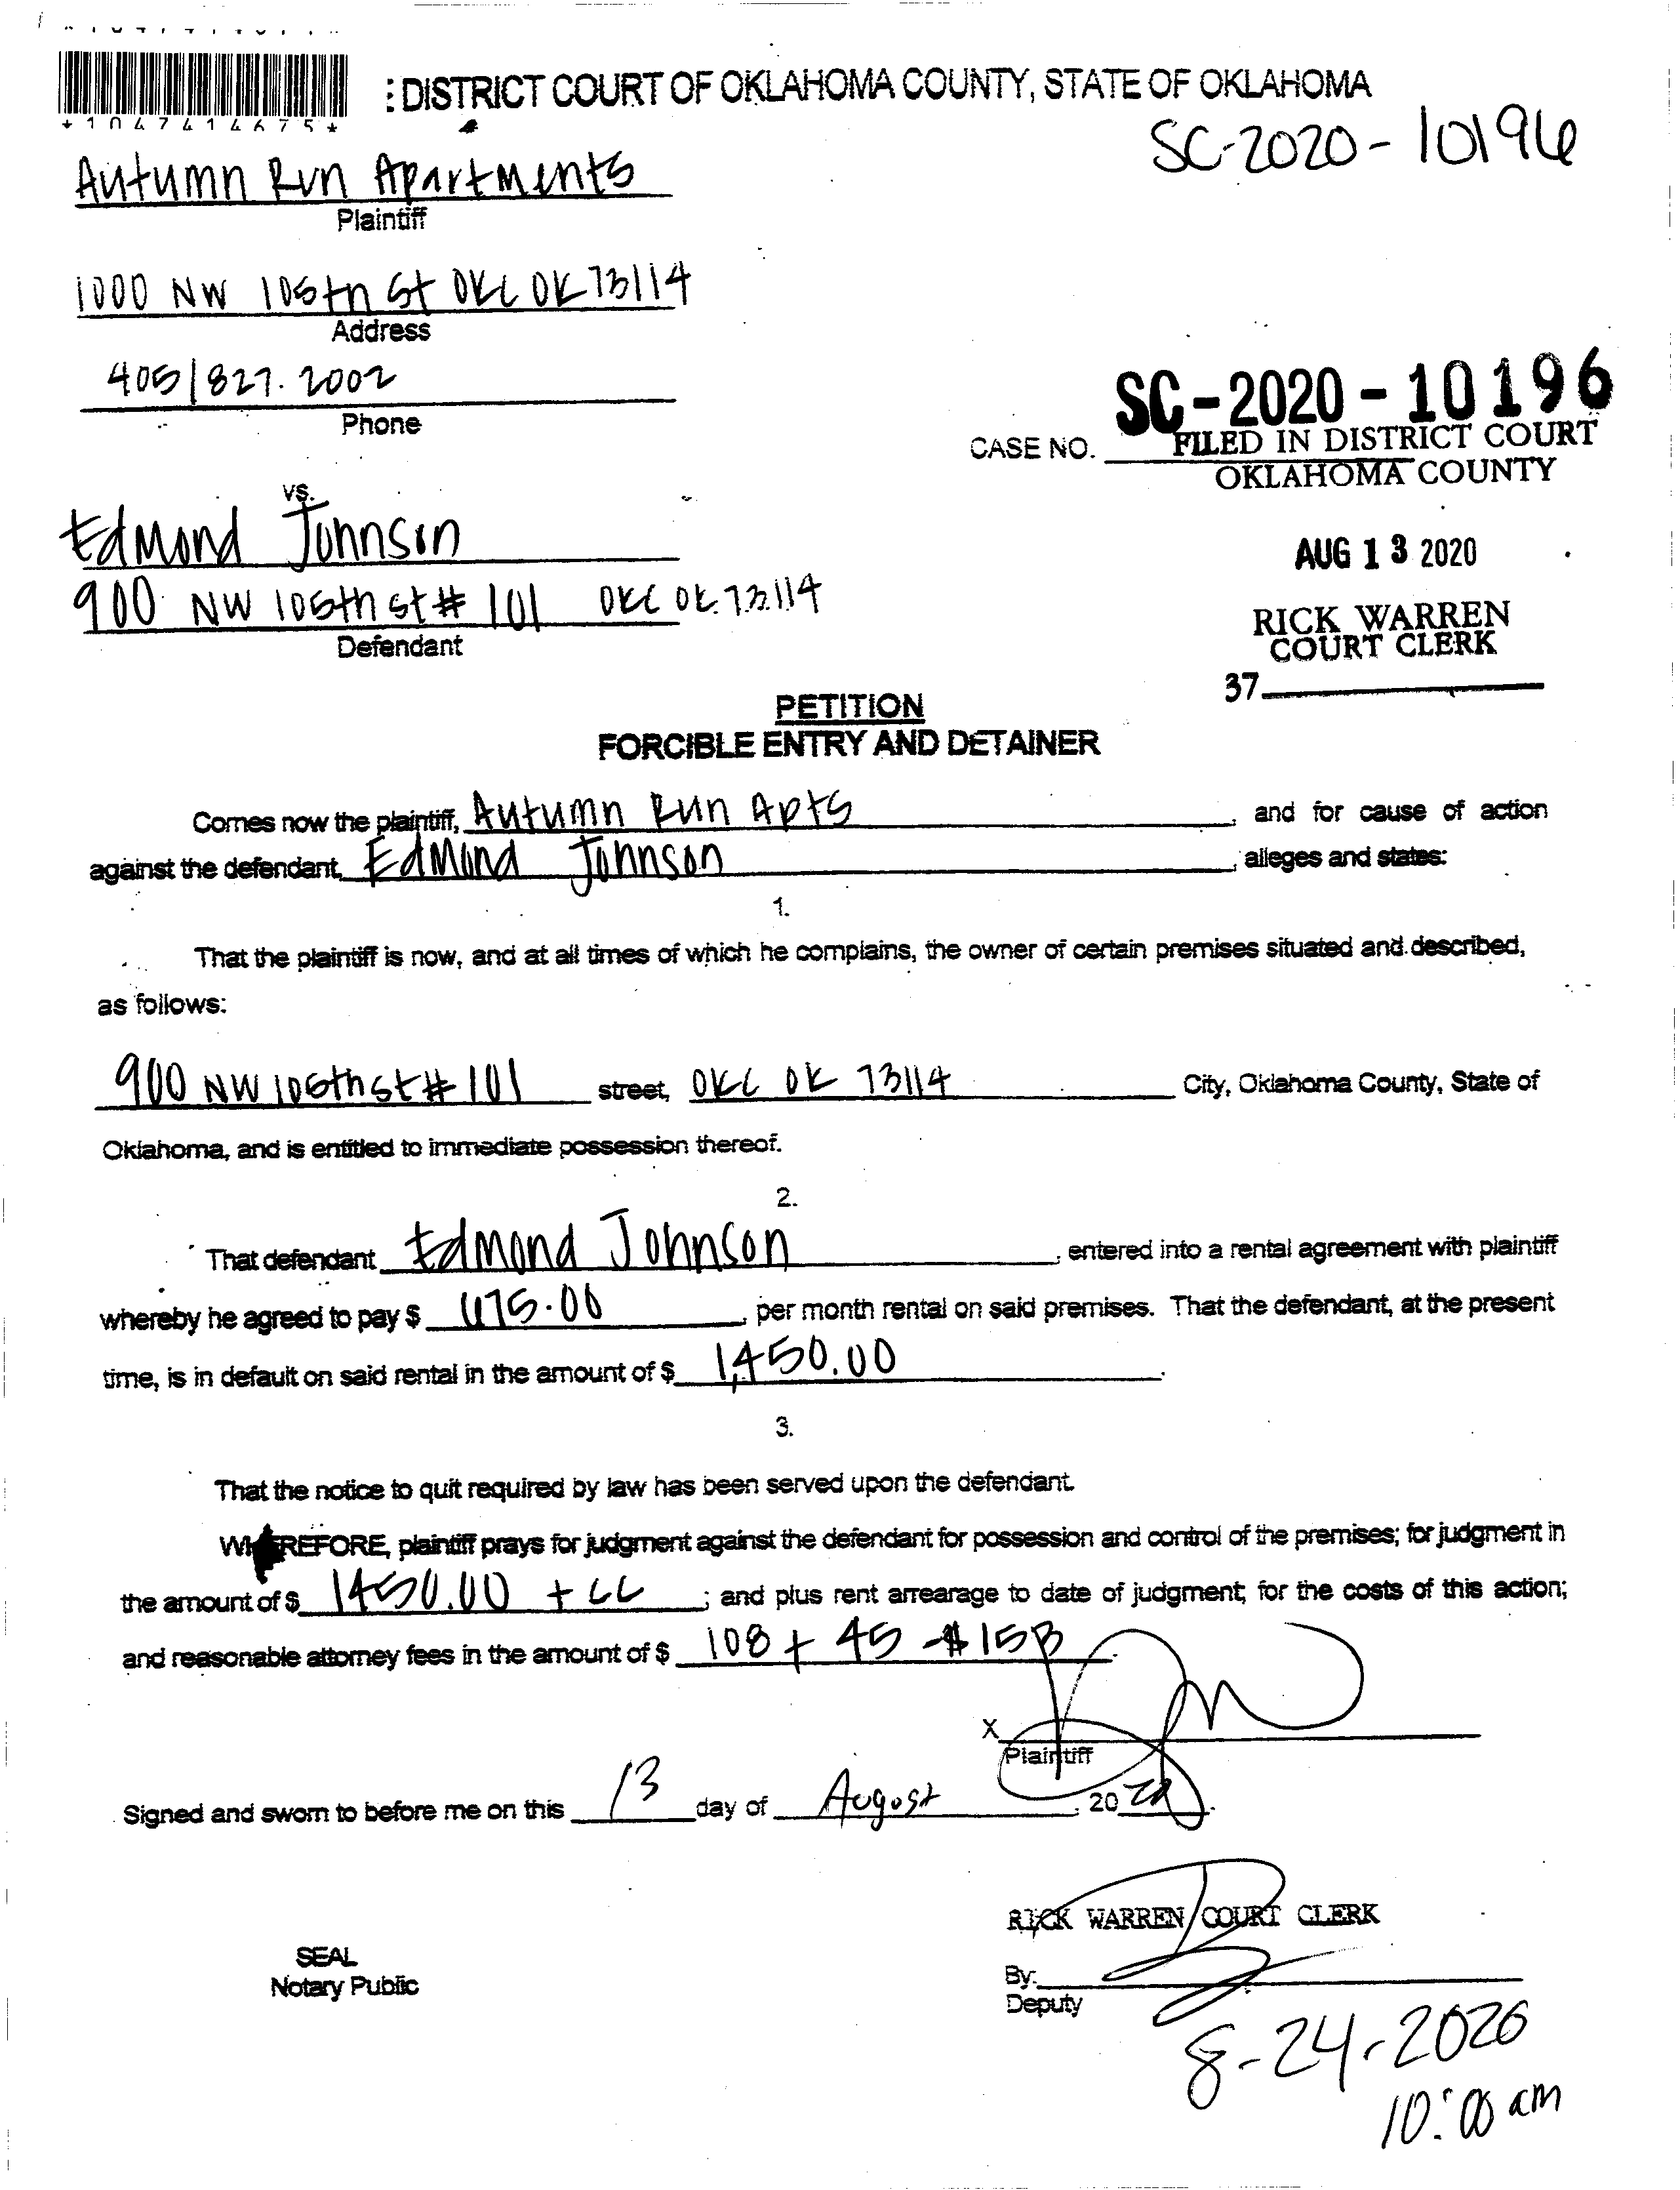 *1047414675*
: DISTRICT COURT OF OKLAHOMA COUNTY, STATE OF OKLAHOMA
SC-2020-10196
Autumn Run Apartments
Plaintiff
1000 NW 105th St OKC OK 73114
Address
405/827.2002
Phone
SC-2020-10196
CASE NO.
FILED IN DISTRICT COURT
OKLAHOMA COUNTY
vs.
Edmond Johnson
AUG 13 2020
900 NW 105th st # 101 OKC OK 73114
Defendant
RICK WARREN
COURT CLERK
37
PETITION
FORCIBLE ENTRY AND DETAINER
Comes now the plaintiff, Autumn Run Apts, and for cause of action
against the defendant, Edmond Johnson, alleges and states:
1.
That the plaintiff is now, and at all times of which he complains, the owner of certain premises situated and described,
as follows:
900 NW 105th st # 101 street, OKC OK 73114 City, Oklahoma County, State of
Oklahoma, and is entitled to immediate possession thereof.
2.
That defendant Edmond Johnson, entered into a rental agreement with plaintiff
whereby he agreed to pay $ 675.00, per month rental on said premises. That the defendant, at the present
time, is in default on said rental in the amount of $ 1,450.00.
3.
That the notice to quit required by law has been served upon the defendant.
WHEREFORE, plaintiff prays for judgment against the defendant for possession and control of the premises; for judgment in
the amount of $ 1450.00 + CC; and plus rent arrearage to date of judgment; for the costs of this action;
and reasonable attorney fees in the amount of $ 108 + 45 - $153.
X
Plaintiff
Signed and sworn to before me on this 13 day of August, 2020.
RICK WARREN COURT CLERK
SEAL
Notary Public
By:
Deputy
8-24-2020
10:00 am